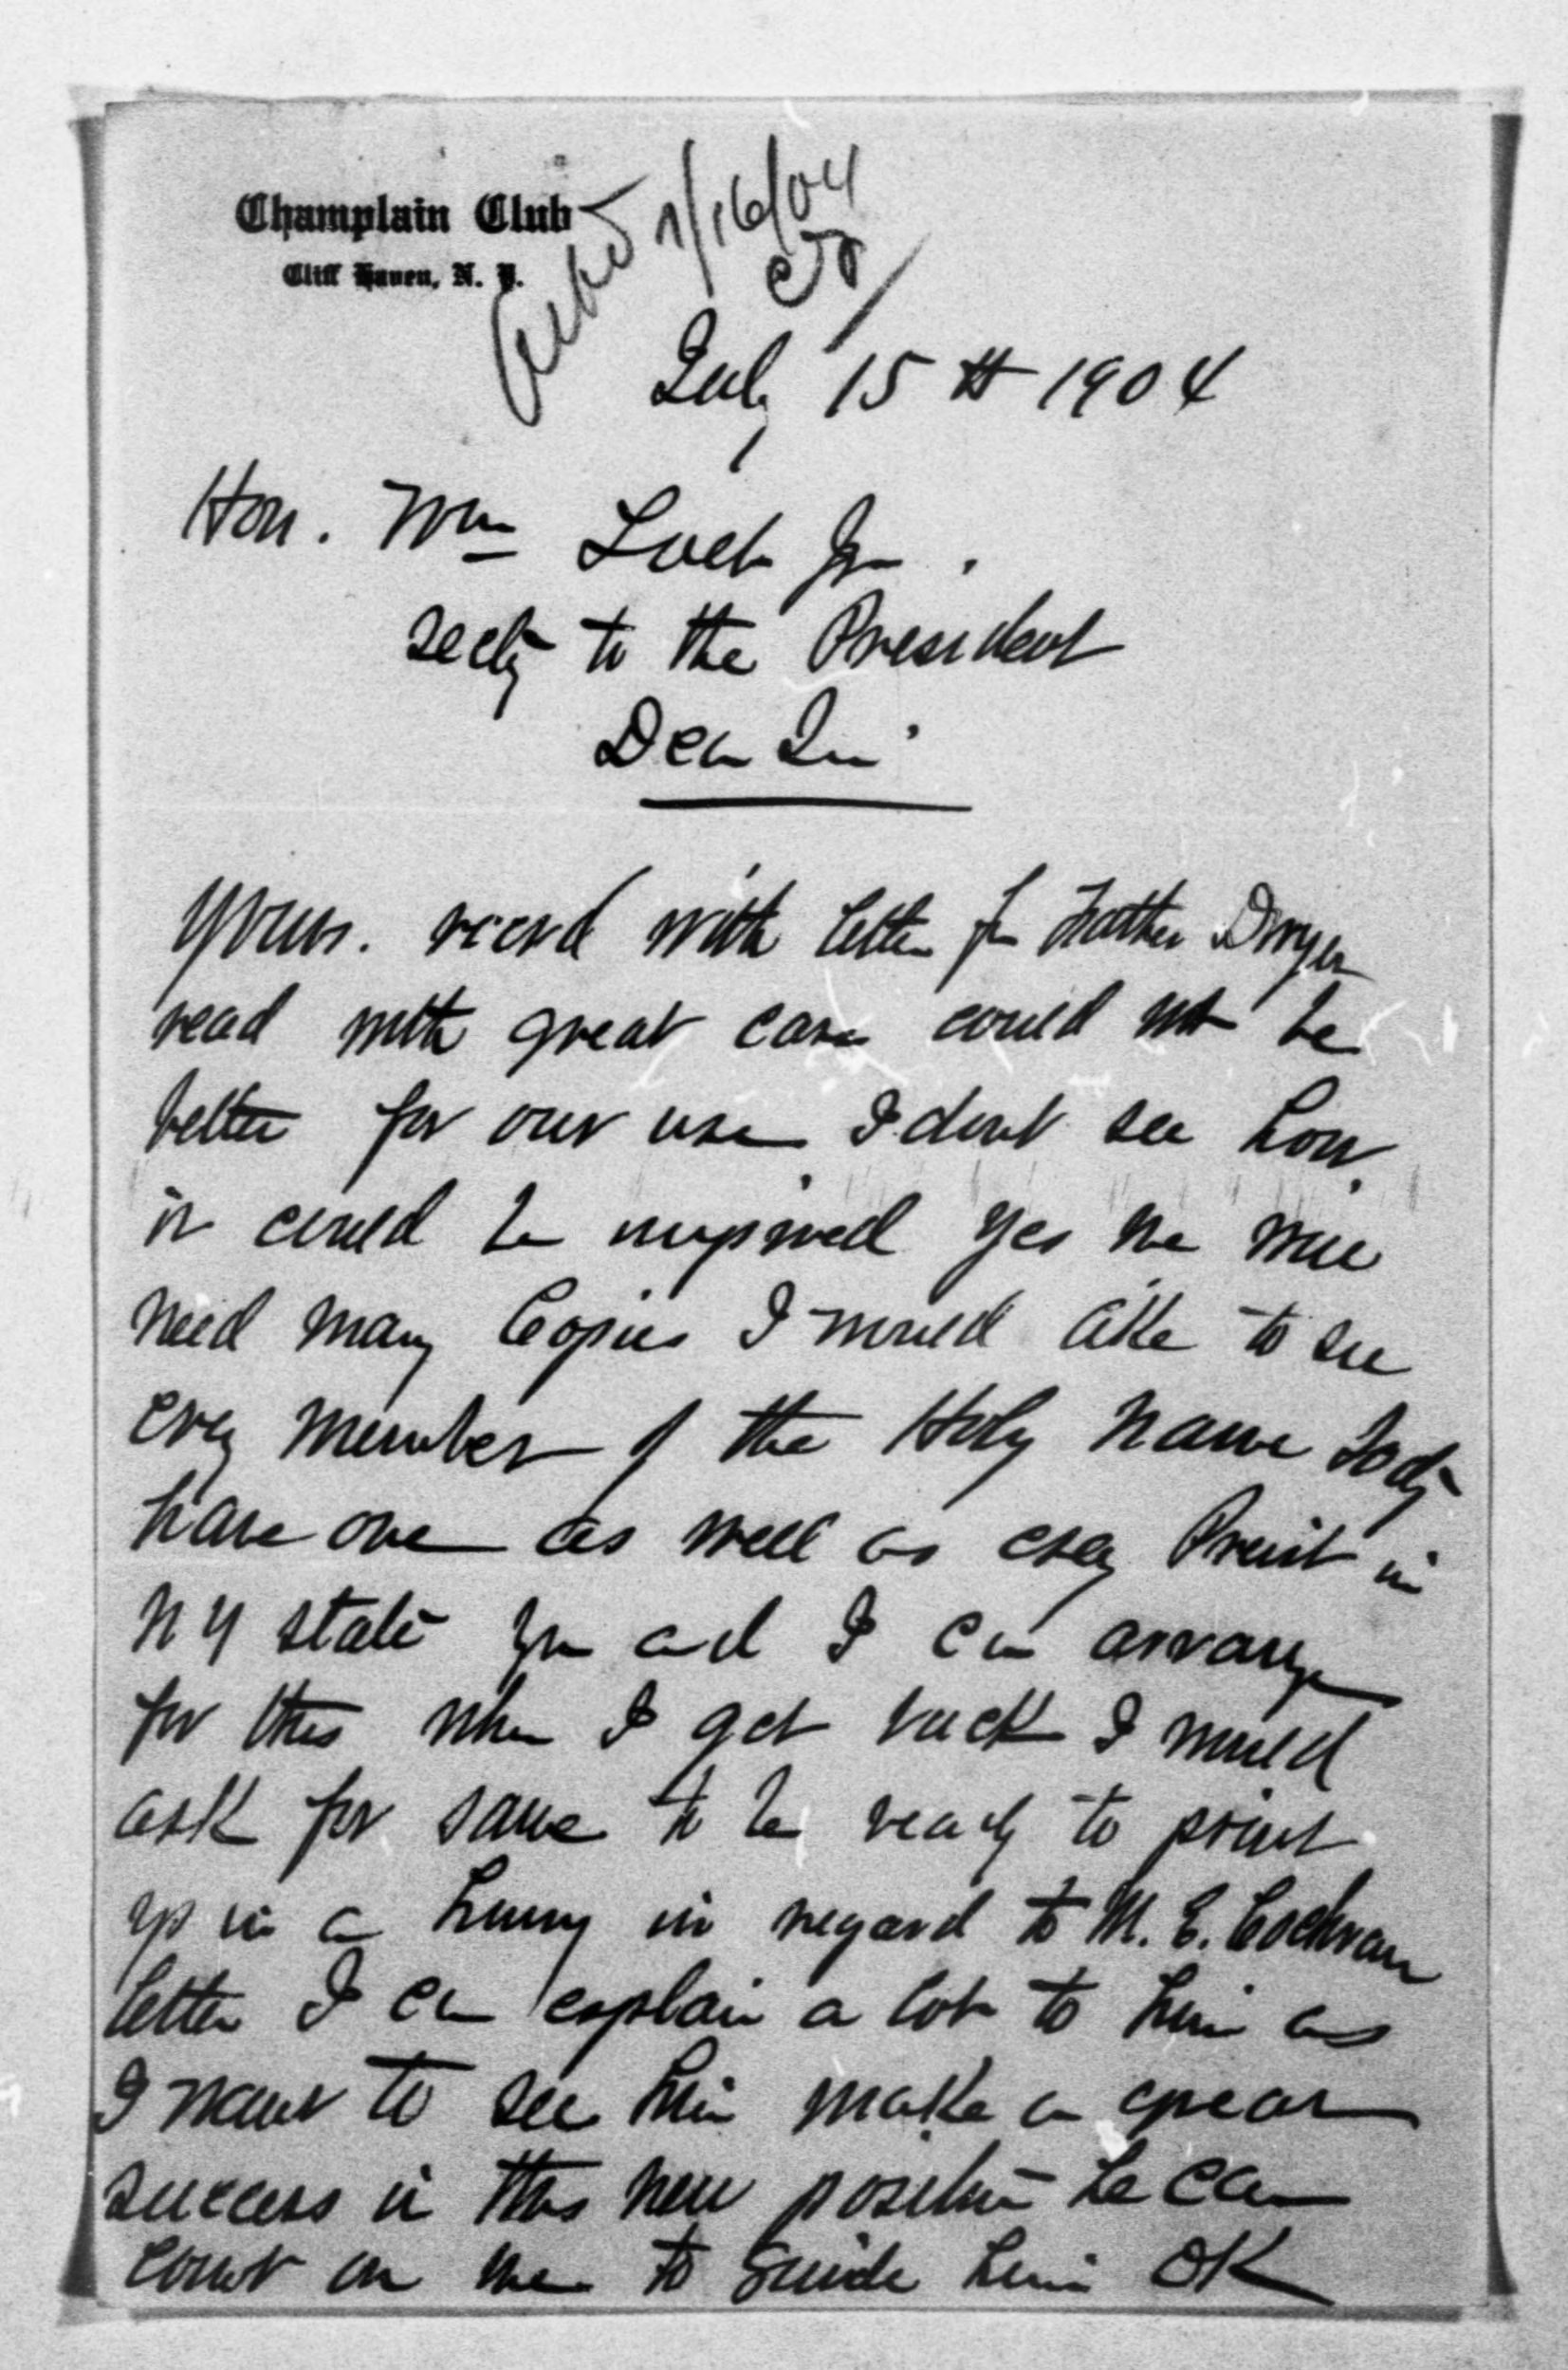 Champlain Club
Cliff Haven, N. Y.
Ackd 7/16/04
July 15th 1904
Hon. Wm Loeb Jr.
Secty to the President
Dear Sir
Yours. recevd with letter fr Father Dwyer
read with great care could not be
better for our use I dont see how
it could be improved Yes we will
need many Copies I would like to see
every member of the Holy Name Socty
have one as well as every Preist in
NY state you and I can arrange
for this when I get back I would
ask for same to be ready to print
up in a hurry in regard to M. E. Cochran
letter I can explain a lot to him as
I want to see him make a great
success in this new position he can
count on me to guide him OK